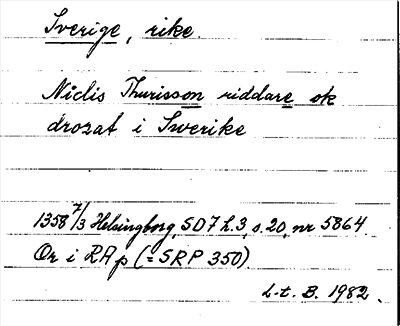 Sverige, rike.
Niclis Thurisson riddare ok
drozat i Swerike
1358 7/3 Helsingborg, SD 7 h.3, s. 20, nr 5864.
Or i RAp (= SRP 350)
L-t. B. 1982.